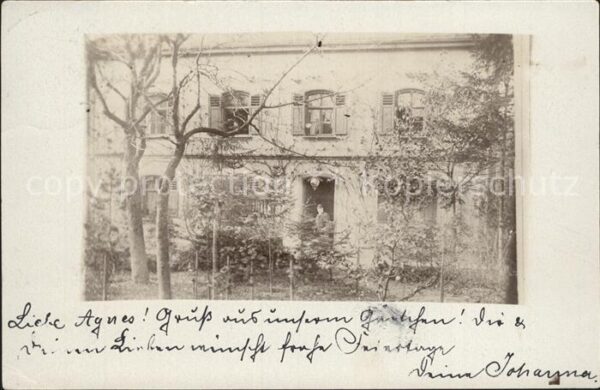 copy protection Kopierschutz
Liebe Agnes! Gruß aus unserm Gärtchen! Dir &
Deinen Lieben wünscht frohe Feiertage
Deine Johanna.